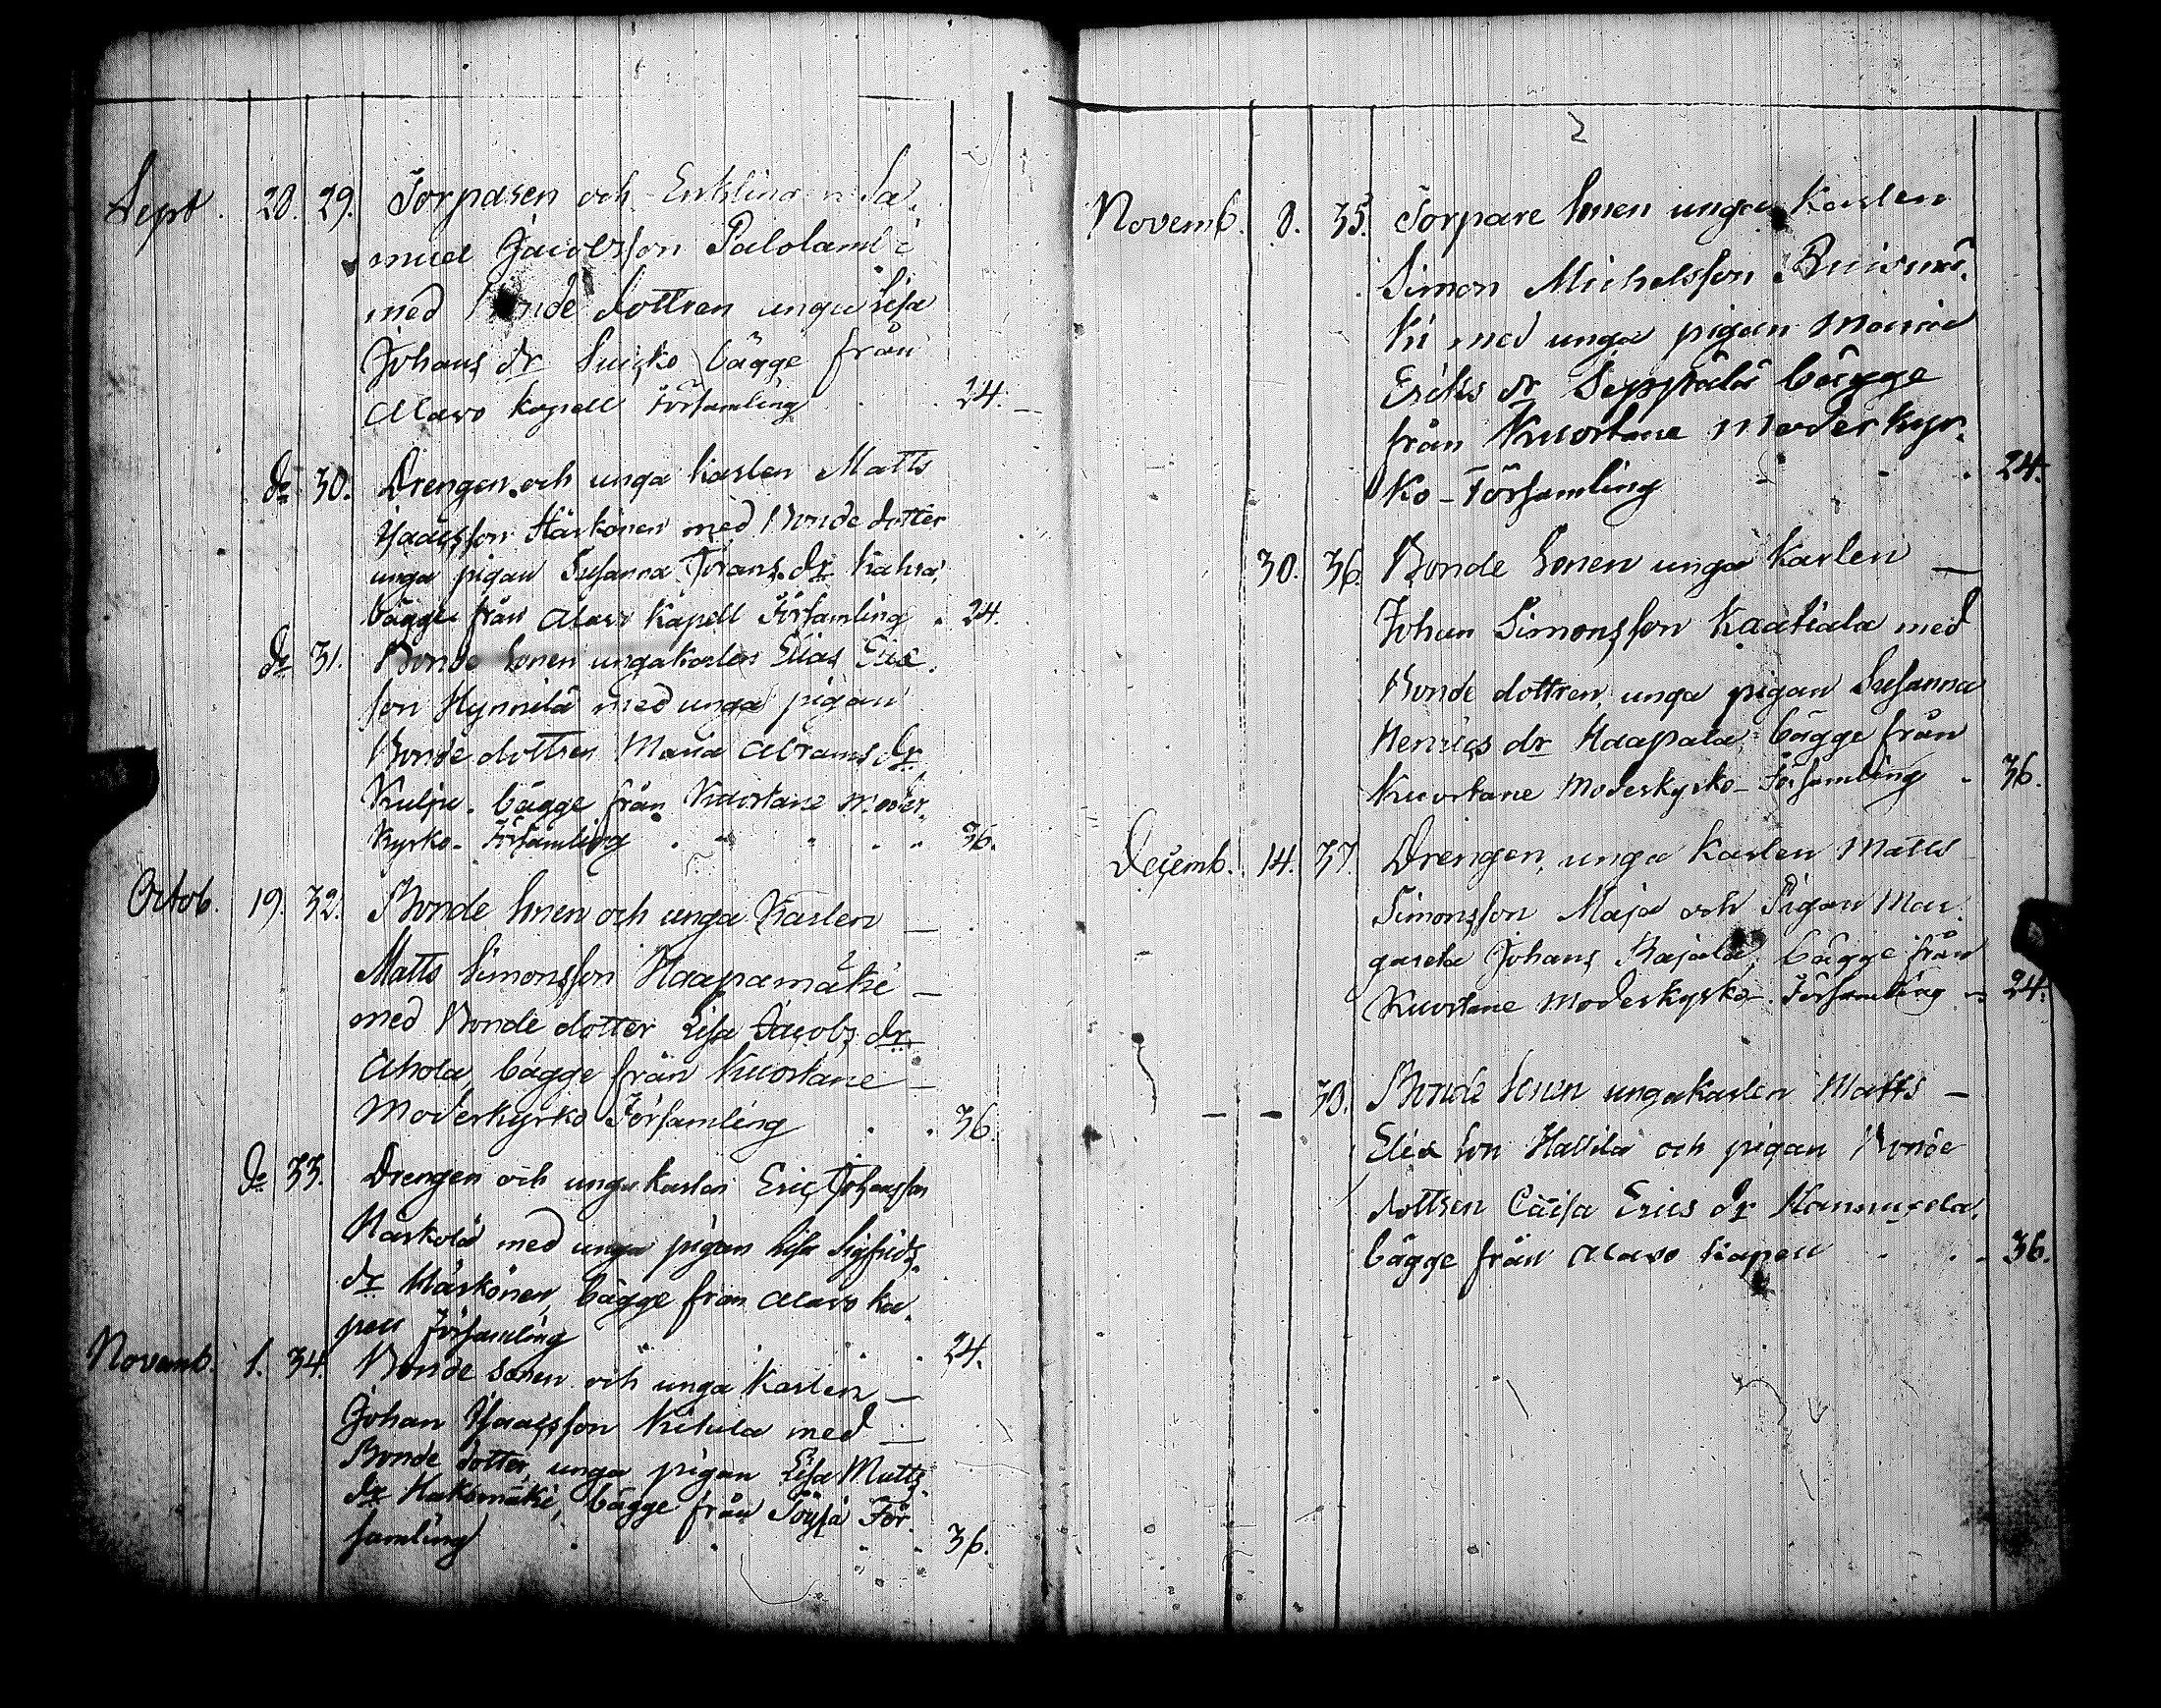 Sept. 28. 29. Torparen och Enklingen Sa-
muel Jacobsson Palolambi
med Bonde dottren unga Lisa
Johans dr Suisko bägge från
Alavo Kapell Församling . . 24.
do 30. Drengen och unga karlen Matts
Isaacsson Härkönen med Bonde dotter
unga pigan Susanna Jörans dr Kahra,
bägge från Alavo Kapell Församling . 24.
do 31. Bonde Sonen unga karlen Elias Eric
son Hynnilä med unga pigan
Bonde dottren Maria Abrams dr
Kulju. bägge från Kuortane Moder-
kyrko-Församling . . . . 36.
Octob. 19. 32. Bonde Sonen och unga Karlen —
Matts Simonsson Haapamäki —
med Bonde dotter Lisa Jacobs dr
Ahola, bägge från Kuortane —
Moderkyrko Församling . . 36.
do 33. Drengen och unga karlen Eric Johansson
Harkolä med unga pigan Lisa Sigfrids
dr Härkönen, bägge från Alavo ka-
pell Församling . . . . 24.
Novemb. 1. 34. Bonde sonen och unga Karlen —
Johan Isaacsson Kitula med —
Bonde dotter, unga pigan Lisa Matts
dr Hakomäki, bägge från Töysä För-
samling . . . . 36.
Novemb. 8. 35. Torpare Sonen unga Karlen
Simon Michelsson Ruismä-
ki med unga pigan Maria
Eriks dr Seppälä bägge
från Kuortane Moderkyr-
ko-Församling . . . 24.
30. 36. Bonde Sonen unga Karlen —
Johan Simonsson Kaatiala med
Bonde dottren, unga pigan Susanna
Henrics dr Haapala, bägge från
Kuortane Moderkyrko-Församling . 36.
Decemb. 14. 37. Drengen, unga Karlen Matts
Simonsson Maja och Pigan Mar-
gareta Johans Rajala, bägge från
Kuortane Moderkyrko-Församling 24.
— — 38. Bonde Sonen unga karlen Matts —
Elia son Hallila och pigan Bonde
dottren Caisa Erics dr Hannuxela,
bägge från Alavo Kapell . . . 36.